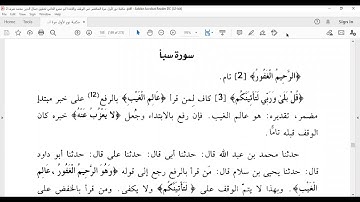 سورة سبأ
﴿الرَّحِيمُ الْغَفُورُ﴾ [2] تام.
﴿قُلْ بَلَىٰ وَرَبِّي لَتَأْتِيَنَّكُمْ﴾ [3] كاف لمن قرأ ﴿عَالِمُ الْغَيْبِ﴾ بالرفع(12) على خبر مبتدإ
مضمر، تقديره: هو عالم الغيب. فإن رفع بالابتداء وجُعل ﴿لا يَعْزُبُ عَنْهُ﴾ خبره كان
الوقف قبله تامًا.
حدثنا محمد بن عبد الله قال: حدثنا أبي قال: حدثنا علي قال: حدثنا أبو داود
قال: حدثنا يحيى بن سلام قال: من قرأ بالرفع رجع إلى قوله ﴿وَهُوَ الرَّحِيمُ الْغَفُورُ، عَالِمُ
الْغَيْبِ﴾. وبهذا لا يتم الوقف على ﴿لَتَأْتِيَنَّكُمْ﴾ ولا يكفي. ومن قرأ بالخفض على